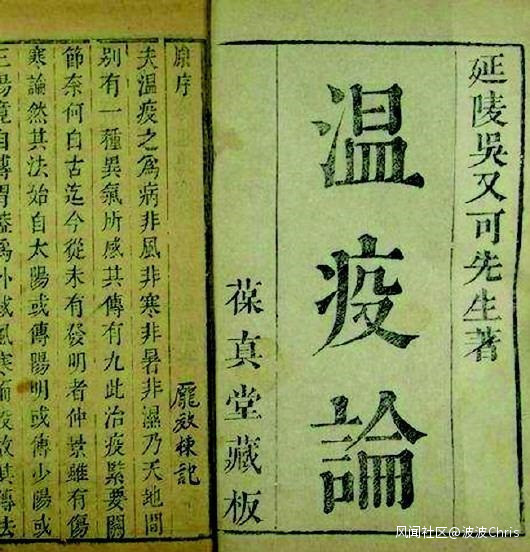 延陵吳又可先生著
温疫論
葆真堂藏板
原序
夫温疫之爲病非風非寒非暑非濕乃天地間
别有一種異氣所感其傳有九此治疫緊要關
節奈何自古迄今從未有發明者仲景雖有傷
寒論然其法始自太陽或傳陽明或傳少陽或
三陽竟自傳胃葢爲外感風寒而設故其傳法
龐效棟記
风闻社区@波波Chris